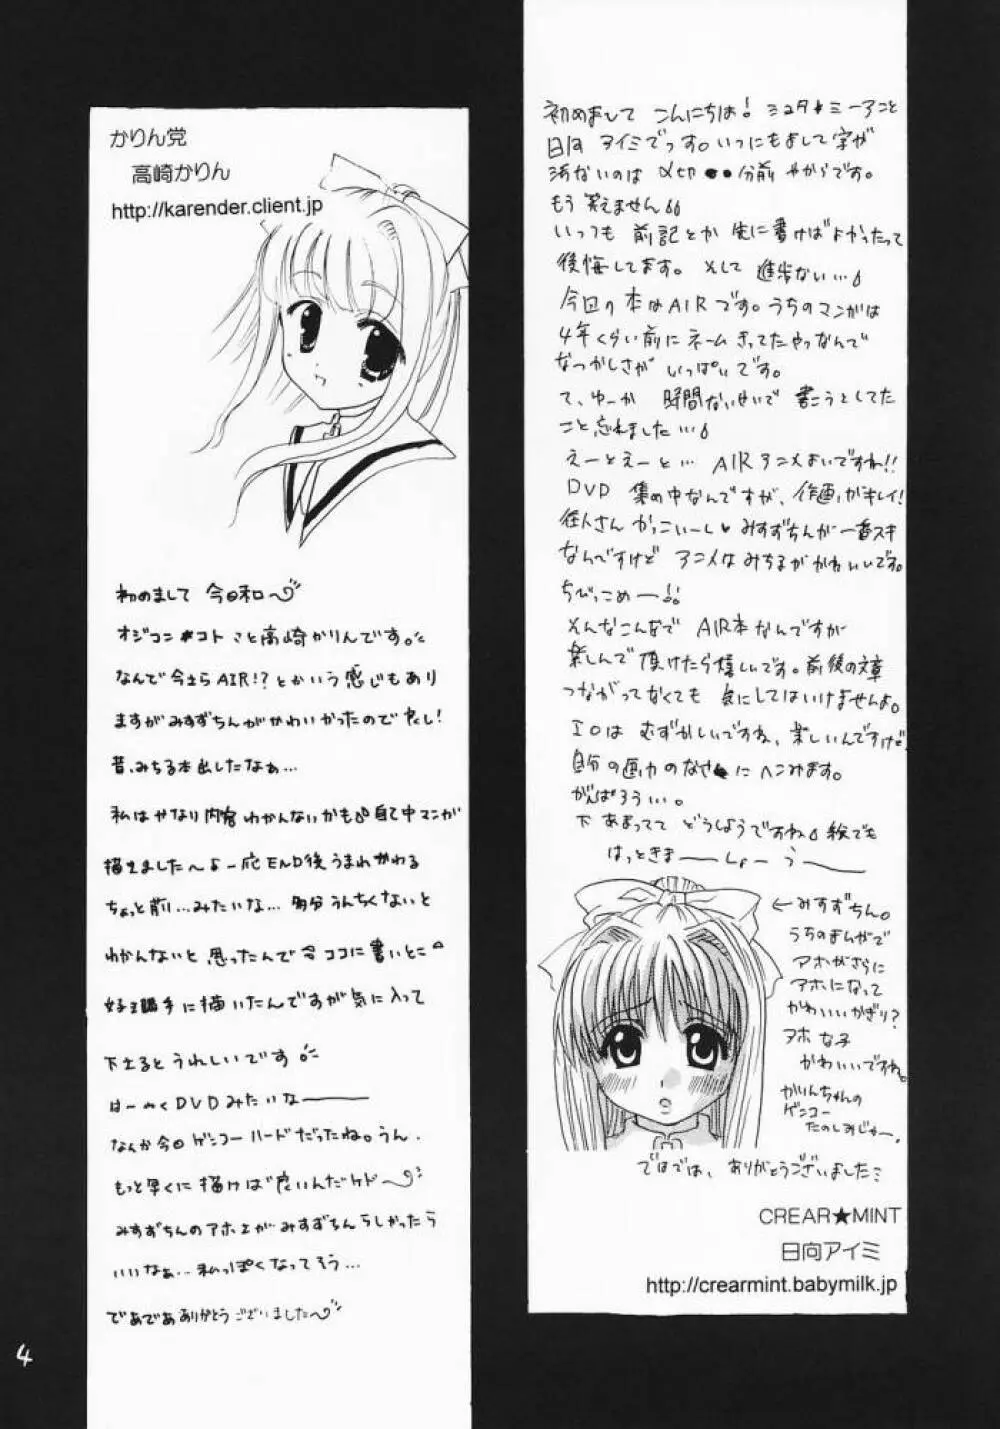 かりん党
高崎かりん
http://karender.client.jp
初めまして 今日和
オジコン#コト こと高崎かりんです。
なんで今さらAIR!?とかいう感じもあり
ますがみすずちんがかわいかったので良し!
昔、みちる本出したなぁ…
私はかなり内容わかんないかも 自己中マンガ
描きました〜 一応END後うまれかわる
ちょっと前…みたいな…多分うんちくないと
わかんないと思ったんで今ココに書いとこ
好き勝手に描いたんですが気に入って
下さるとうれしいです。
はーやくDVDみたいなー
なんか今回ゲンコーハードだったね。うん。
もっと早くに描けば良いんだケドー
みすずちんのアホさがみすずちんらしかったら
いいなぁ…私っぽくなってそう…
であであありがとうございました〜
初めまして こんにちは! ミュタ★ミーアこと
日向 アイミでっす。いつにもまして字が
汚ないのは 〆切●●分前 やからです。
もう 笑えません
いっつも 前記とか 先に書けばよかったって
後悔してます。そして 進歩ない…
今回の本はAIRです。うちのマンガは
4年くらい前にネームきってたやつなんで
なつかしさが いっぱいです。
て、ゆーか 時間ないせいで 書こうとしてた
こと忘れました…
えーとえーと… AIRアニメよいですね!!
DVD 集め中なんですが、作画がキレイ!
往人さん かっこいーし♥みすずちんが一番スキ
なんですけど アニメはみちるがかわいいです。
ちびっこめー
そんなこんなで AIR本なんですが
楽しんで頂けたら嬉しいです。前後の文章
つながってなくても 気にしてはいけませんよ。
エロは むずかしいですね、楽しいんですけど
自分の画力のなさにヘこみます。
がんばろうぃ。
下 あまってて どうしようですね 絵でも
はっときまーしょーうー
←みすずちん。
うちのまんがで
アホがさらに
アホになって
かわいいかぎり?
アホな子
かわいいですね。
かりんちゃんの
ゲンコー
たのしみじゃー。
ではでは、ありがとうございました
CREAR★MINT
日向アイミ
http://crearmint.babymilk.jp
4